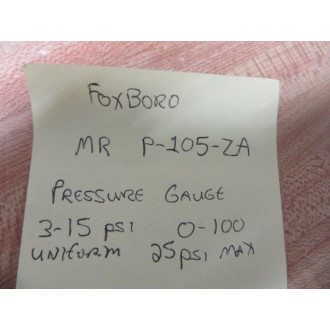 FOXBORO
MR P-105-ZA
PRESSURE GAUGE
3-15 psi 0-100
UNIFORM 25psi MAX